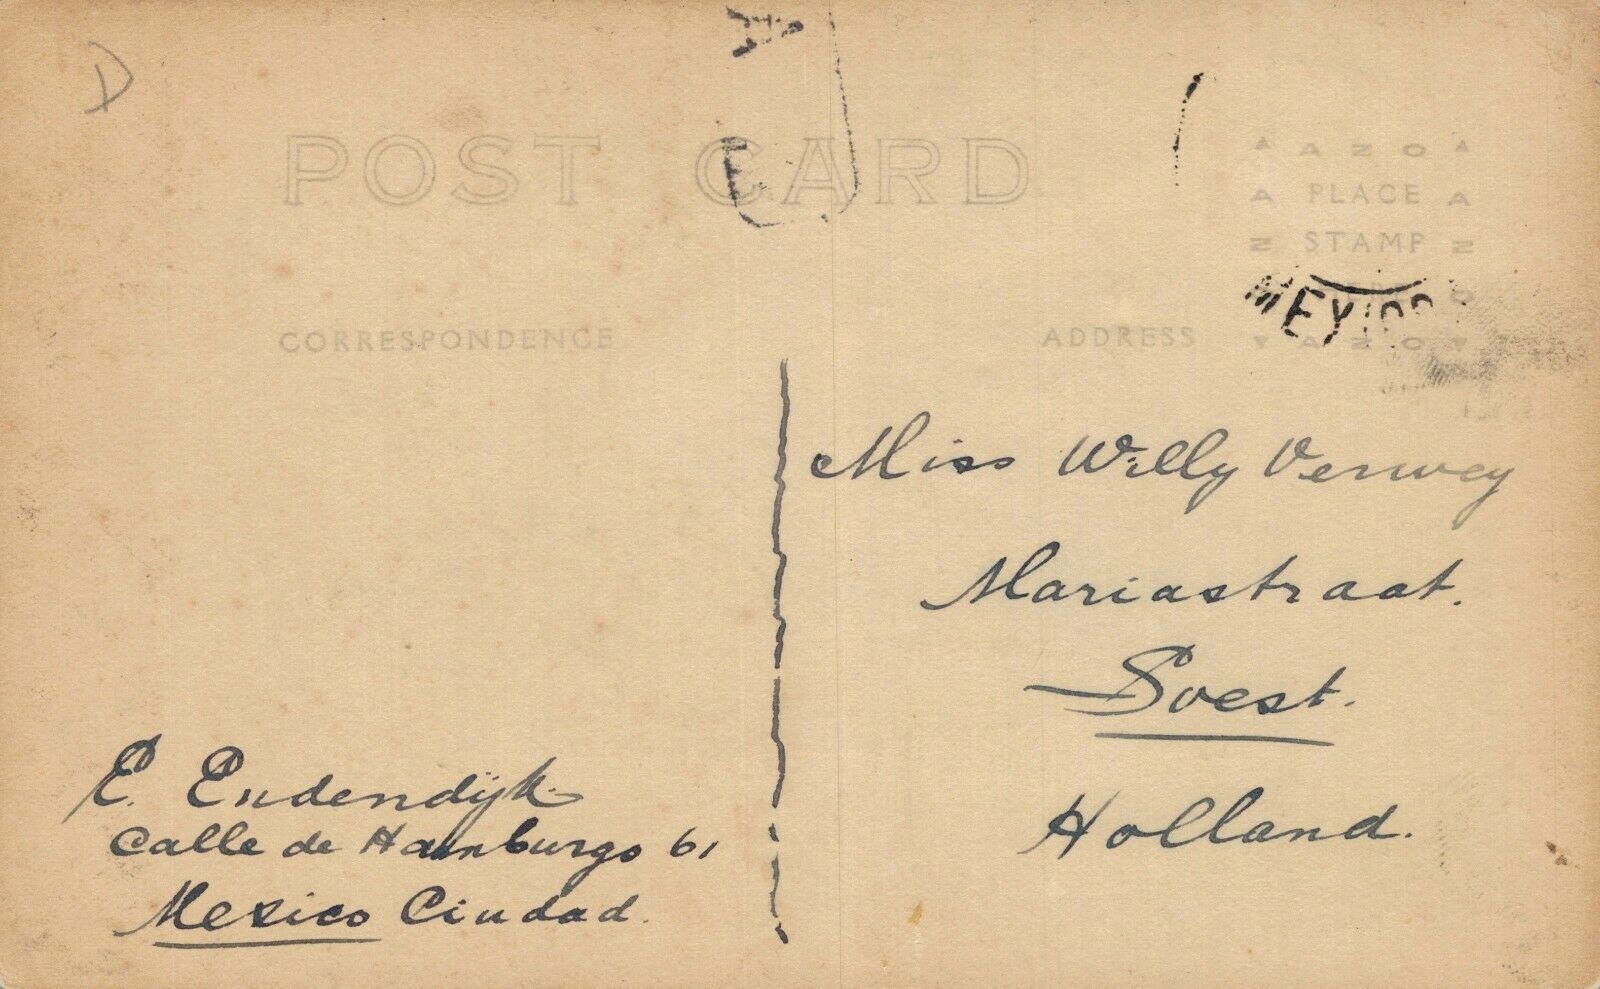 D
POST CARD
AZO
PLACE
STAMP
CORRESPONDENCE
ADDRESS
MEXICO
AZO
Miss Willy Verwey
Mariastraat.
Soest.
Holland.
E. Endendijk.
Calle de Hamburgo 61
Mexico Ciudad.